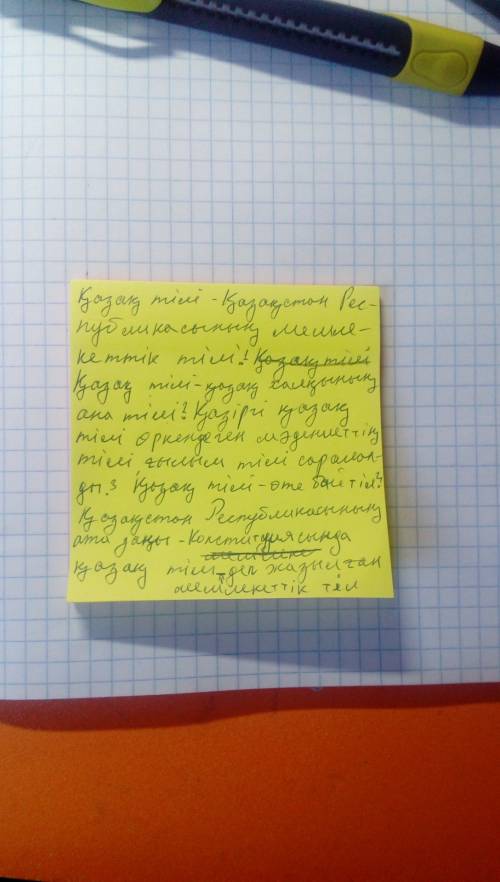 Қазақ тілі - Қазақстан Рес-
публикасының мемле-
кеттік тілі! Қазақ тілі
Қазақ тілі - қазақ халқының
ана тілі? Қазіргі қазақ
тілі өркендеген мәдениеттің
тілі ғылым тілі
Қазақ тілі - өте бай тіл?
Қазақстан Республикасының
ата заңы - Конституциясында
қазақ тілі - деп жазылған
мемлекеттік тіл